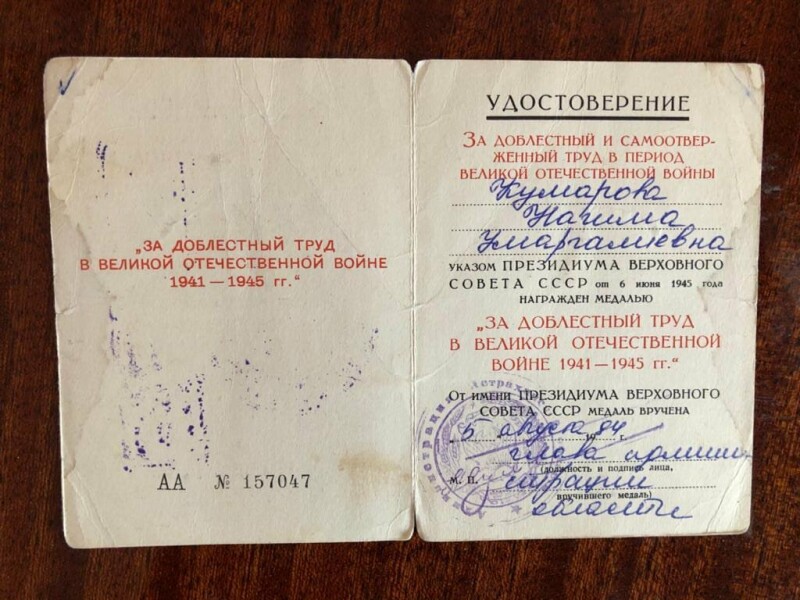 „ЗА ДОБЛЕСТНЫЙ ТРУД
В ВЕЛИКОЙ ОТЕЧЕСТВЕННОЙ ВОЙНЕ
1941 — 1945 гг.“
АА № 157047
УДОСТОВЕРЕНИЕ
ЗА ДОБЛЕСТНЫЙ И САМООТВЕР-
ЖЕННЫЙ ТРУД В ПЕРИОД
ВЕЛИКОЙ ОТЕЧЕСТВЕННОЙ ВОЙНЫ
Кумарова
Нагима
Умаргалиевна
УКАЗОМ ПРЕЗИДИУМА ВЕРХОВНОГО
СОВЕТА СССР от 6 июня 1945 года
НАГРАЖДЕН МЕДАЛЬЮ
„ЗА ДОБЛЕСТНЫЙ ТРУД
В ВЕЛИКОЙ ОТЕЧЕСТВЕННОЙ
ВОЙНЕ 1941 — 1945 гг.“
От имени ПРЕЗИДИУМА ВЕРХОВНОГО
СОВЕТА СССР МЕДАЛЬ ВРУЧЕНА
5 августа 94 г.
глава админи-
(должность и подпись лица,
М. П. страции
вручившего медаль)
области